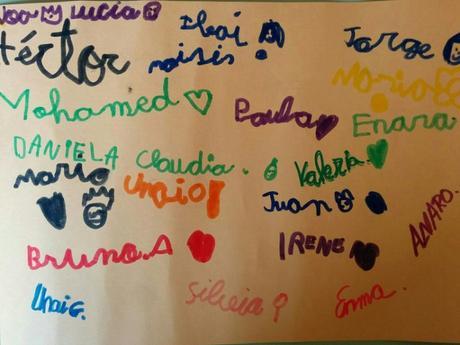 Lucía
Ibai
Jorge
Héctor
moisis
Maria
Mohamed
Paula
Enara
DANIELA Claudia. Valeria.
Mario
Unaio
Juan
ANARO.
Bruno.A
IRENE
Unai G.
Silvia
Emma.